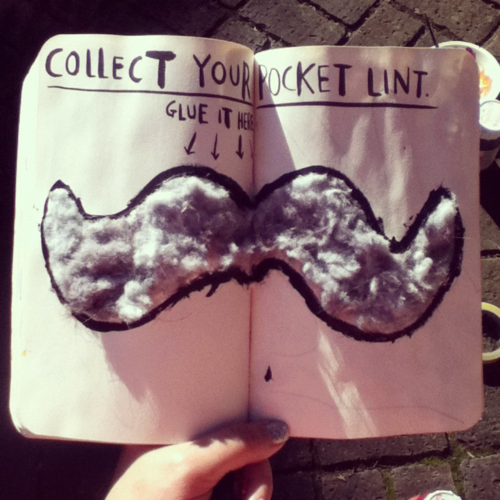 COLLECT YOUR POCKET LINT.
GLUE IT HERE